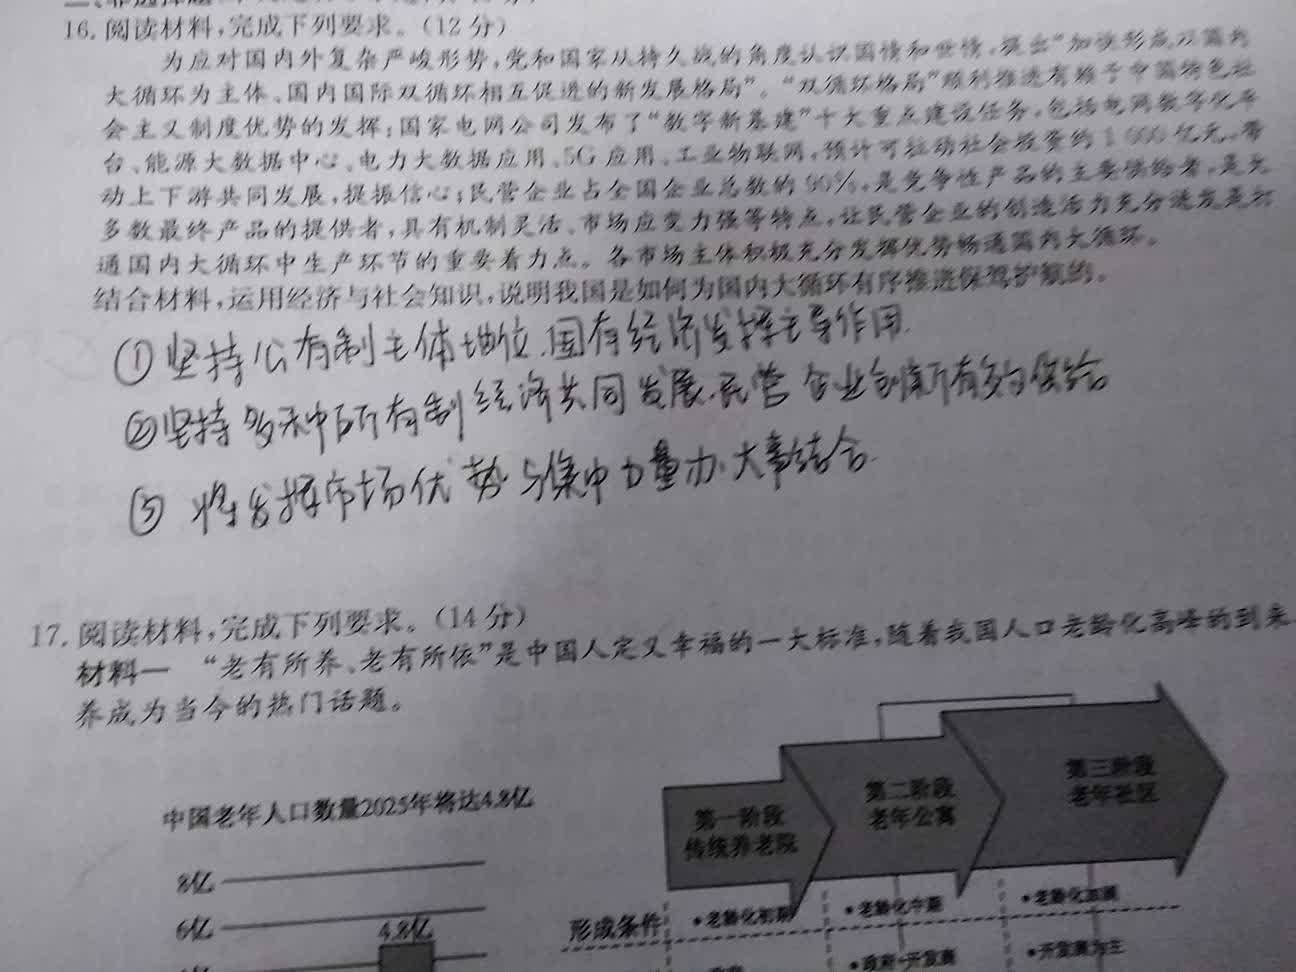 16. 阅读材料，完成下列要求。（12分）
为应对国内外复杂严峻形势，党和国家从持久战的角度认识国情和世情，提出“加快形成以国内
大循环为主体、国内国际双循环相互促进的新发展格局”。“双循环格局”顺利推进有赖于中国特色社
会主义制度优势的发挥：国家电网公司发布了“数字新基建”十大重点建设任务，包括电网数字化平
台、能源大数据中心、电力大数据应用、5G应用、工业物联网，预计可拉动社会投资约1000亿元，带
动上下游共同发展，提振信心；民营企业占全国企业总数的90%，是竞争性产品的主要供给者，是大
多数最终产品的提供者，具有机制灵活、市场应变力强等特点，让民营企业的创造活力充分迸发是打
通国内大循环中生产环节的重要着力点。各市场主体积极充分发挥优势畅通国内大循环。
结合材料，运用经济与社会知识，说明我国是如何为国内大循环有序推进保驾护航的。
①坚持公有制主体地位，国有经济发挥主导作用.
②坚持多种所有制经济共同发展，民营企业创新有效供给
③ 将发挥市场优势与集中力量办大事结合.
17. 阅读材料，完成下列要求。（14分）
材料一 “老有所养、老有所依”是中国人定义幸福的一大标准，随着我国人口老龄化高峰的到来
养成为当今的热门话题。
中国老年人口数量2025年将达4.8亿
8亿
6亿
4.8亿
第一阶段
传统养老院
第二阶段
老年公寓
第三阶段
老年社区
形成条件
•老龄化初期
•老龄化中期
•老龄化加剧
•政府+开发商
•开发商为主